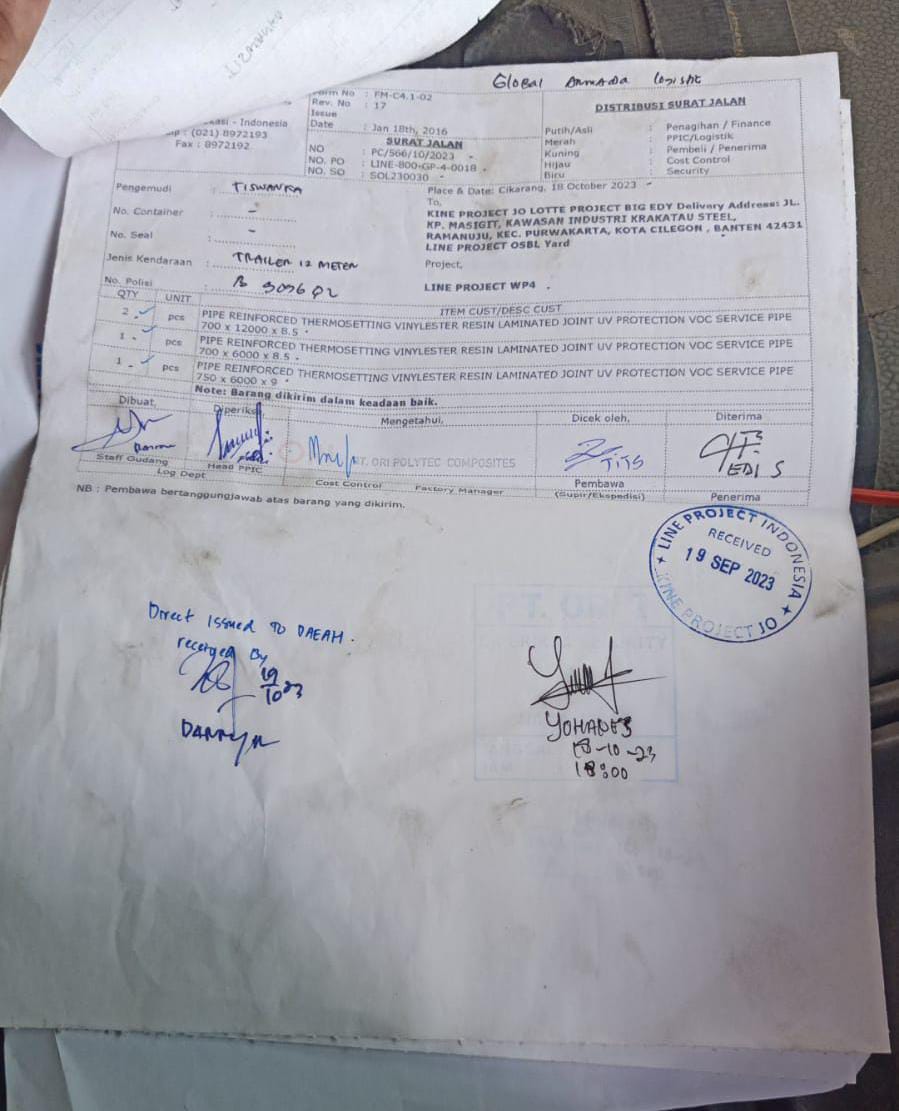 Global Armada Logistic
Form No : FM-C4.1-02
Rev. No : 17
Issue
Date : Jan 18th, 2016
- Indonesia
: (021) 8972193
Fax : 8972192
SURAT JALAN
NO : PC/566/10/2023
NO. PO : LINE-800-GP-4-0018
NO. SO : SOL230030
DISTRIBUSI SURAT JALAN
Putih/Asli : Penagihan / Finance
Merah : PPIC/Logistik
Kuning : Pembeli / Penerima
Hijau : Cost Control
Biru : Security
Pengemudi : TISWANRA
No. Container : -
No. Seal : -
Jenis Kendaraan : TRAILER 12 METER
No. Polisi :
Place & Date: Cikarang, 18 October 2023
To,
KINE PROJECT JO LOTTE PROJECT BIG EDY Delivery Address: JL.
KP. MASIGIT, KAWASAN INDUSTRI KRAKATAU STEEL,
RAMANUJU, KEC. PURWAKARTA, KOTA CILEGON , BANTEN 42431
LINE PROJECT OSBL Yard
Project,
LINE PROJECT WP4 .
QTY UNIT ITEM CUST/DESC CUST
2 pcs PIPE REINFORCED THERMOSETTING VINYLESTER RESIN LAMINATED JOINT UV PROTECTION VOC SERVICE PIPE
700 x 12000 x 8.5
1 pcs PIPE REINFORCED THERMOSETTING VINYLESTER RESIN LAMINATED JOINT UV PROTECTION VOC SERVICE PIPE
700 x 6000 x 8.5
1 pcs PIPE REINFORCED THERMOSETTING VINYLESTER RESIN LAMINATED JOINT UV PROTECTION VOC SERVICE PIPE
750 x 6000 x 9
Note: Barang dikirim dalam keadaan baik.
Dibuat, Diperiksa Mengetahui, Dicek oleh, Diterima
PT. ORI POLYTEC COMPOSITES
TITS
EDI S
Staff Gudang Head PPIC Cost Control Factory Manager Pembawa Penerima
Log Dept (Supir/Ekspedisi)
NB : Pembawa bertanggungjawab atas barang yang dikirim.
LINE PROJECT INDONESIA
RECEIVED
19 SEP 2023
KINE PROJECT JO
Direct Issued To DAEAH.
received By
19/10 23
YOHANES
18-10-23
18:00